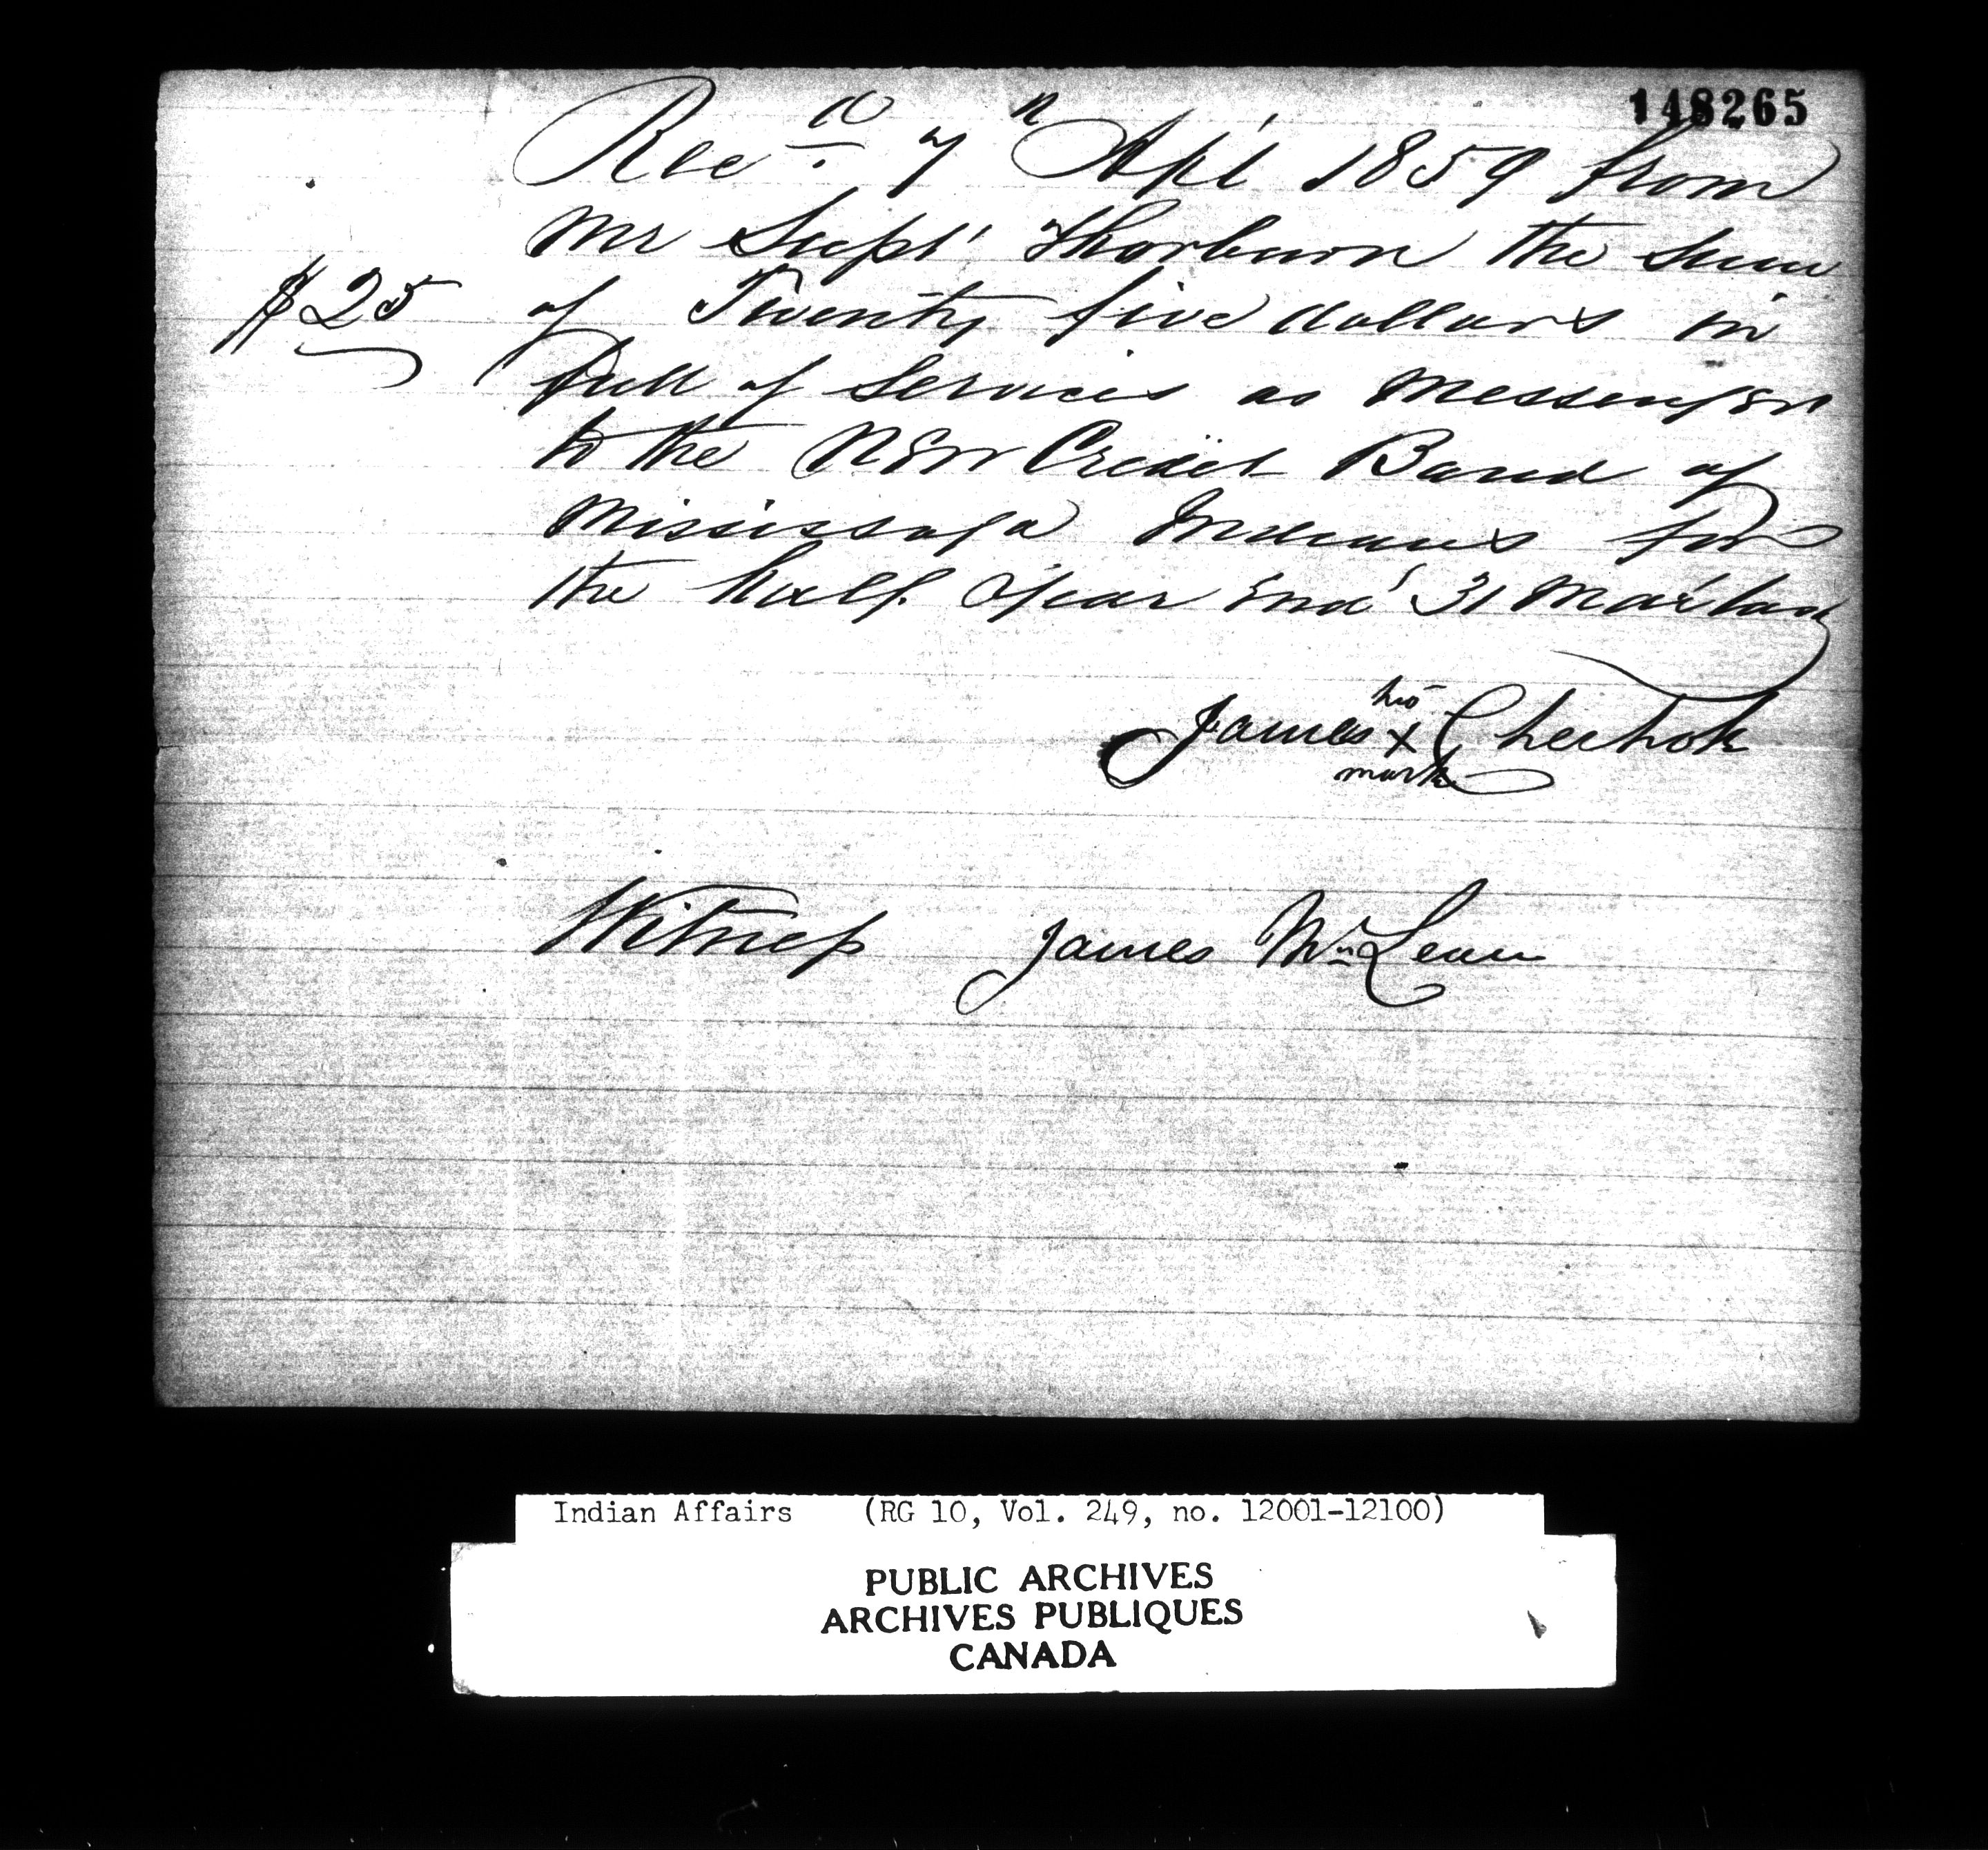 148265
Recd. 7th Apl 1859 from
Mr Supt Thorburn the Sum
$25 of Twenty five dollars in
full of Services as Messenger
to the New Credit Band of
Mississaga Indians for
the half Year End' 31 Mar last
his
James x Chechok
mark
Witness James McLean
Indian Affairs (RG 10, Vol. 249, no. 12001-12100)
PUBLIC ARCHIVES
ARCHIVES PUBLIQUES
CANADA